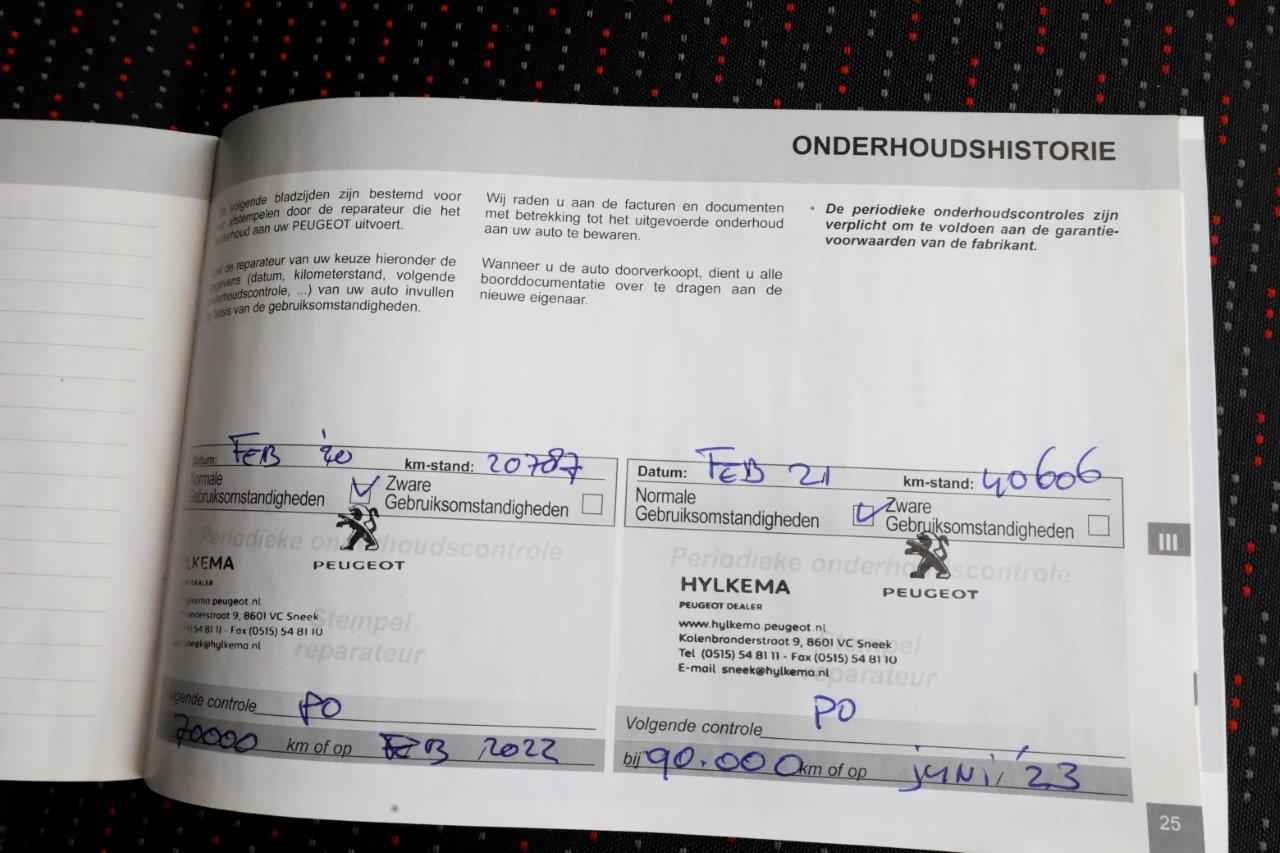 ONDERHOUDSHISTORIE
volgende bladzijden zijn bestemd voor
afstempelen door de reparateur die het
aan uw PEUGEOT uitvoert.
de reparateur van uw keuze hieronder de
(datum, kilometerstand, volgende
...) van uw auto invullen
van de gebruiksomstandigheden.
Wij raden u aan de facturen en documenten
met betrekking tot het uitgevoerde onderhoud
aan uw auto te bewaren.
Wanneer u de auto doorverkoopt, dient u alle
boorddocumentatie over te dragen aan de
nieuwe eigenaar.
• De periodieke onderhoudscontroles zijn
verplicht om te voldoen aan de garantie-
voorwaarden van de fabrikant.
Datum: FEB '20 km-stand: 20787
Normale Zware
Gebruiksomstandigheden Gebruiksomstandigheden
Periodieke onderhoudscontrole
PEUGEOT
LKEMA
DEALER
peugeot.nl
9, 8601 VC Sneek
54 81 11 - Fax (0515) 54 81 10
@hylkema.nl
Stempel
reparateur
controle PO
70000 km of op FEB 2022
Datum: FEB 21 km-stand: 40606
Normale Zware
Gebruiksomstandigheden Gebruiksomstandigheden
Periodieke onderhoudscontrole
PEUGEOT
HYLKEMA
PEUGEOT DEALER
www.hylkema peugeot.nl
Kolenbranderstraat 9, 8601 VC Sneek
Tel (0515) 54 81 11 - Fax (0515) 54 81 10
E-mail sneek@hylkema.nl
reparateur
Volgende controle PO
bij 90.000 km of op juni '23
III
25